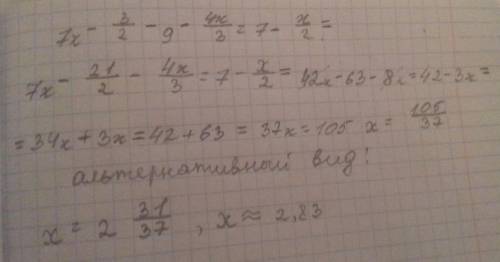 7x - 3/2 - 9 - 4x/3 = 7 - x/2 =
7x - 21/2 - 4x/3 = 7 - x/2 = 42x - 63 - 8x = 42 - 3x =
= 34x + 3x = 42 + 63 = 37x = 105 x = 105/37
альтернативный вид!
x = 2 31/37 , x ≈ 2,83